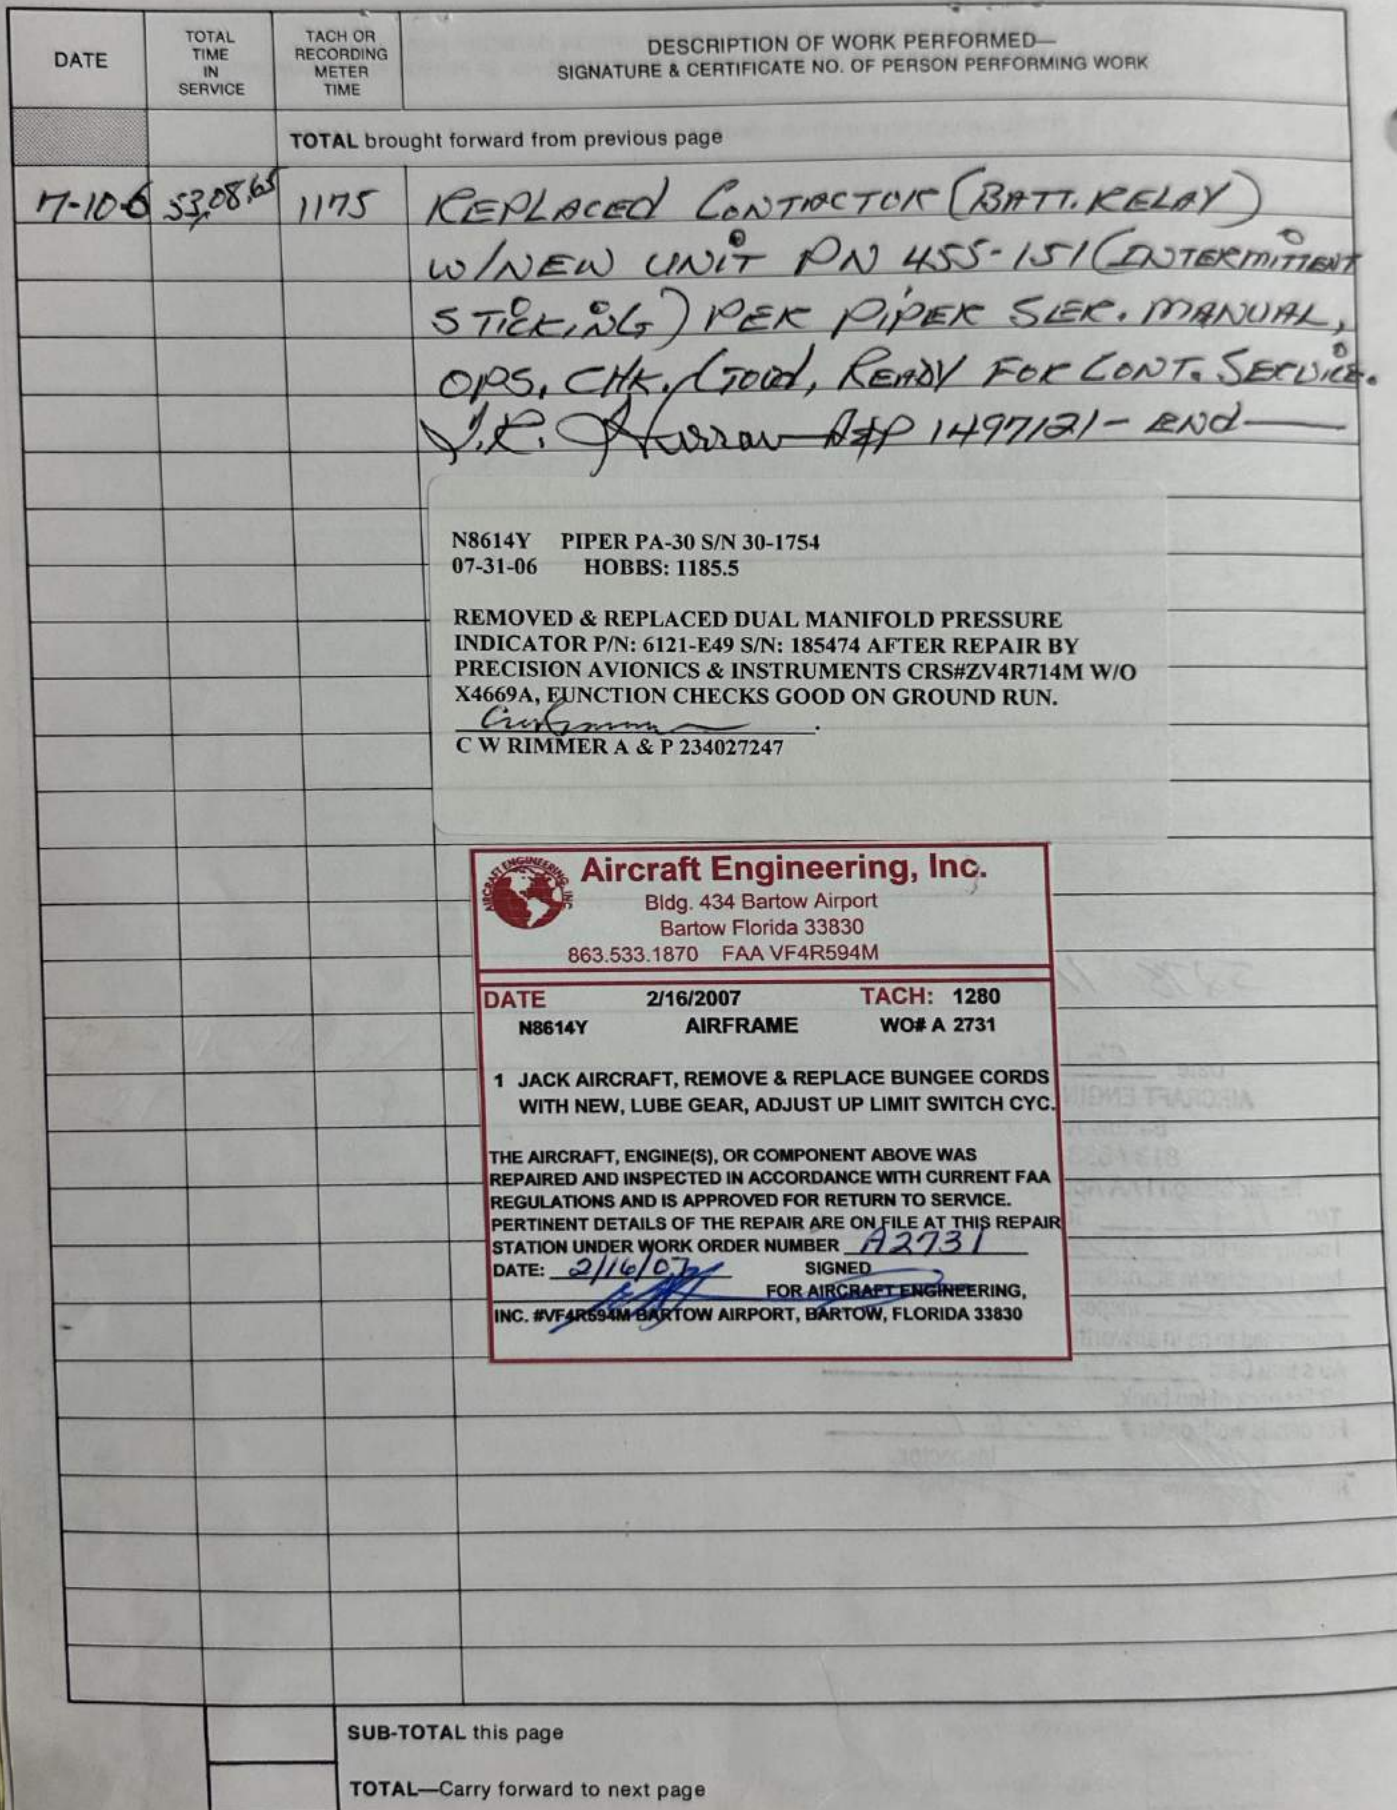 DATE
TOTAL TIME IN SERVICE
TACH OR RECORDING METER TIME
DESCRIPTION OF WORK PERFORMED—
SIGNATURE & CERTIFICATE NO. OF PERSON PERFORMING WORK
TOTAL brought forward from previous page
7-10-6 5308.65 1175 REPLACED CONTRACTOR (BATT. RELAY)
W/NEW UNIT PN 455-151 (INTERMITTENT
STICKING) PER PIPER SER. MANUAL,
OPS. CHK. GOOD, READY FOR CONT. SERVICE.
J.R. A&P 1497121 - END
N8614Y PIPER PA-30 S/N 30-1754
07-31-06 HOBBS: 1185.5
REMOVED & REPLACED DUAL MANIFOLD PRESSURE
INDICATOR P/N: 6121-E49 S/N: 185474 AFTER REPAIR BY
PRECISION AVIONICS & INSTRUMENTS CRS#ZV4R714M W/O
X4669A, FUNCTION CHECKS GOOD ON GROUND RUN.
C W RIMMER A & P 234027247
AIRCRAFT ENGINEERING, INC
Aircraft Engineering, Inc.
Bldg. 434 Bartow Airport
Bartow Florida 33830
863.533.1870 FAA VF4R594M
DATE 2/16/2007 TACH: 1280
N8614Y AIRFRAME WO# A 2731
1 JACK AIRCRAFT, REMOVE & REPLACE BUNGEE CORDS
WITH NEW, LUBE GEAR, ADJUST UP LIMIT SWITCH CYC.
THE AIRCRAFT, ENGINE(S), OR COMPONENT ABOVE WAS
REPAIRED AND INSPECTED IN ACCORDANCE WITH CURRENT FAA
REGULATIONS AND IS APPROVED FOR RETURN TO SERVICE.
PERTINENT DETAILS OF THE REPAIR ARE ON FILE AT THIS REPAIR
STATION UNDER WORK ORDER NUMBER A2731
DATE: 2/16/07 SIGNED
FOR AIRCRAFT ENGINEERING,
INC. #VF4R594M BARTOW AIRPORT, BARTOW, FLORIDA 33830
SUB-TOTAL this page
TOTAL—Carry forward to next page